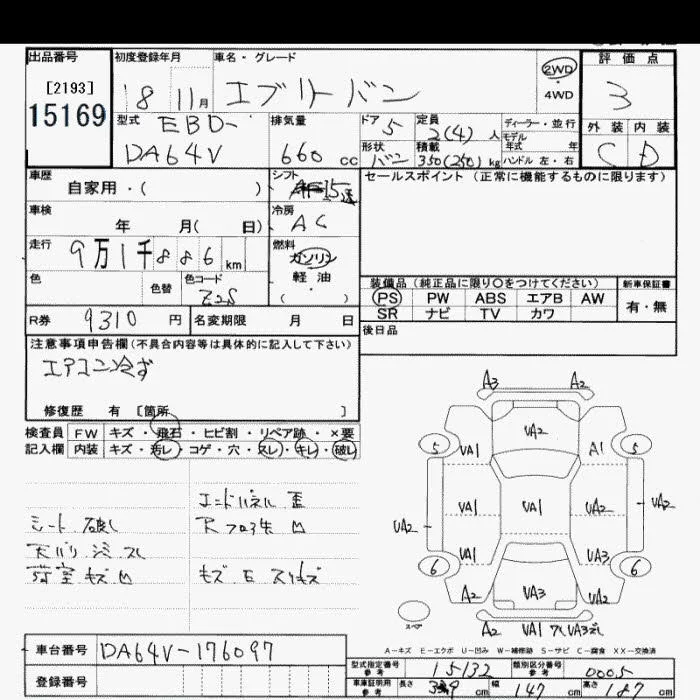 出品番号
[2193]
15169
初度登録年月
18 11月
車名・グレード
エブリイバン
2WD
・
4WD
評価点
3
型式
EBD-
DA64V
排気量
660 cc
ドア
5
形状
バン
定員
2(4)人
積載
350(250)kg
ディーラー・並行
モデル
年式 年
ハンドル 左・右
外装 内装
C D
車歴
自家用・( )
シフト
15速
セールスポイント(正常に機能するものに限ります)
車検
年 月( 日)
冷房
AC
走行
9万1千886km
燃料
ガソリン
軽油
( ・ )
色
色替
色コード
Z2S
装備品(純正品に限り○をつけてください)
PS PW ABS エアB AW
SR ナビ TV カワ
新車保証書
有・無
R券 9310円
名変期限 月 日
後日品
注意事項申告欄(不具合内容等は具体的に記入して下さい)
エアコン冷ず
修復歴 有 [箇所 ]
検査員 FW キズ・飛石・ヒビ割・リペア跡・×要
記入欄 内装 キズ・汚レ・コゲ・穴・スレ・キレ・破レ
エンドパネル 歪
シート 破レ
荷室 キズ凹
A3 A2
VA2
5 VA1 A1 5
VA1 VA1 VA2
VA2 VA2
VA1 VA3
6 6
A2 VA3 VA2
スペア
A2 VA1
A-キズ E-エクボ U-凹み W-補修跡 S-サビ C-腐食 XX-交換済
車台番号 DA64V-176097
登録番号
型式指定番号 参考 15132
類別区分番号 参考 0005
車車証明用 参考 長さ 339cm 幅 147cm 高さ 187cm